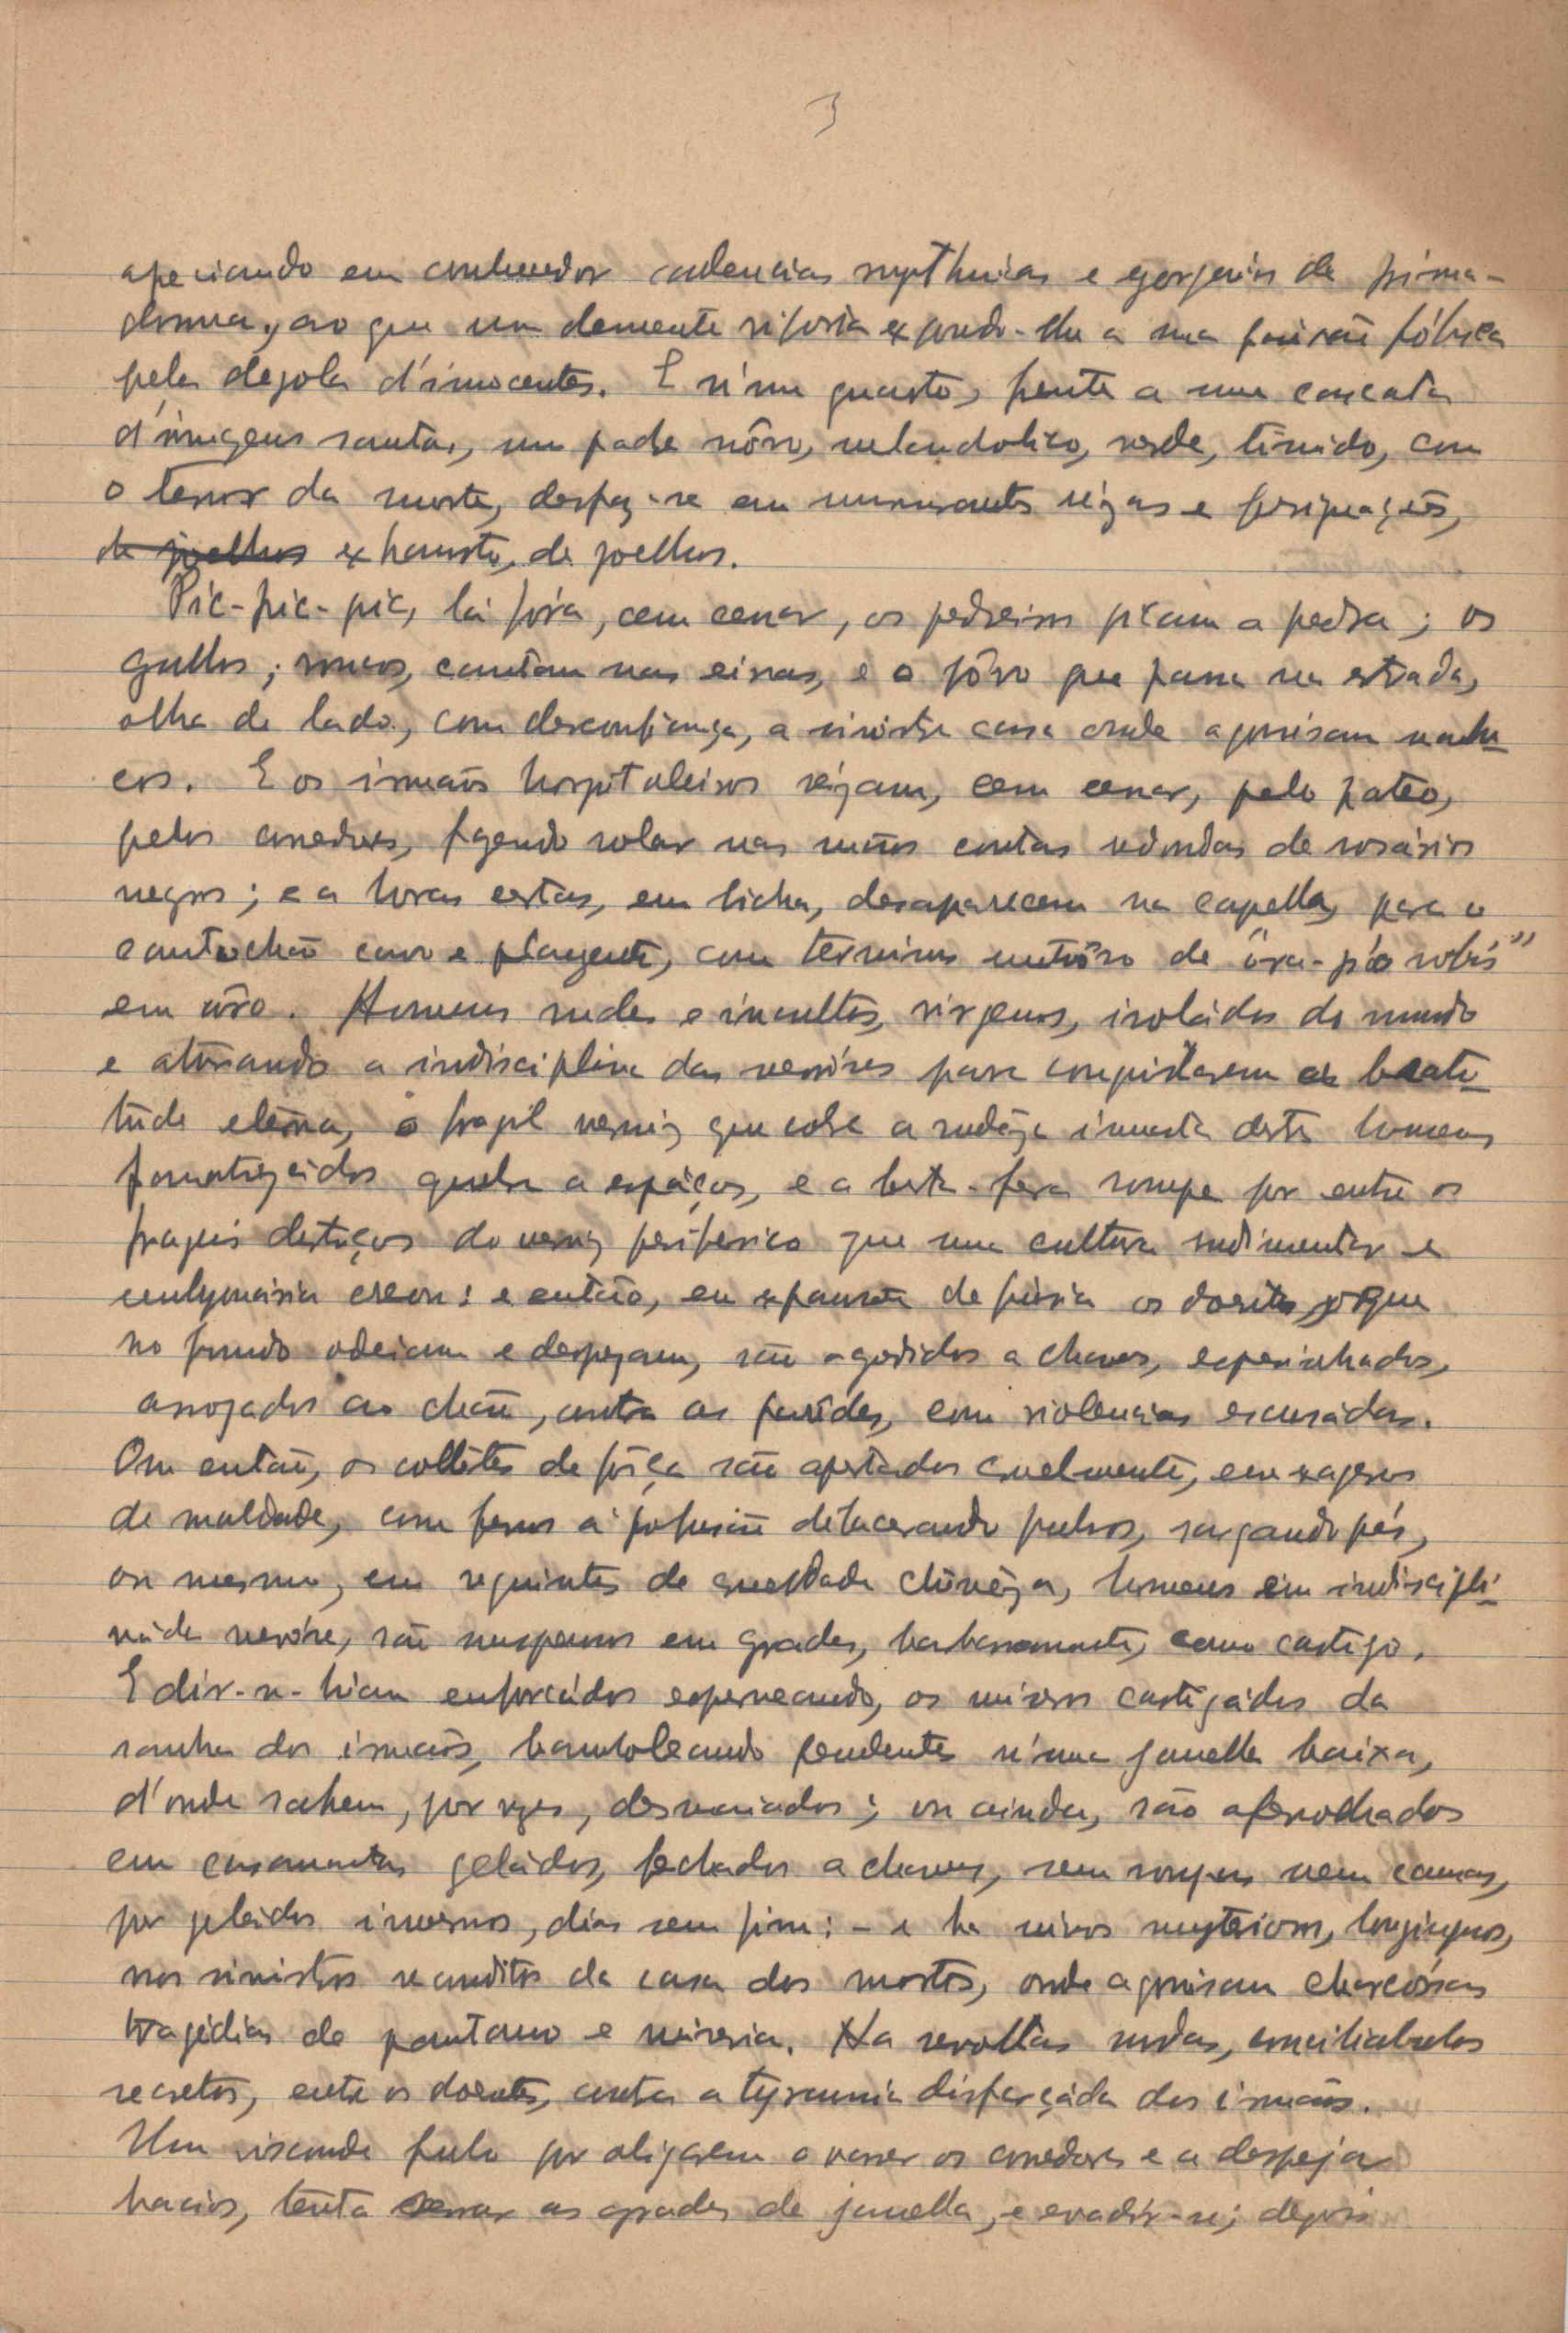 3
apreciando em conhecedor cadencias rythmicas e gorgeios de prima-
donna, ao que um demente riposta expondo-lhe a sua paixão fóbica
pela degola d'innocentes. E n'um quarto, frente a uma cascata
d'imagens santas, um padre nôvo, melancholico, verde, timido, com
o terror da morte, desfaz-se em murmurantes rézas e persignações,
de joelhos exhausto, de joelhos.
Pic-pic-pic, lá fóra, cem cessar, os pedreiros picam a pedra; os
gallos, roucos, cantam nas eiras, e o pôvo que passa na estrada,
olha de lado, com desconfiança, a sinistra casa onde agonisam malu-
cos. E os irmãos hospitaleiros rézam, cem cessar, pelo pateo,
pelos corredores, fazendo rolar nas mãos contas redondas de rosários
negros; e a horas certas, em bicha, desaparecem na capella, para o
cantochão cavo e plangente, com terminus de "óra-pró nobis"
em côro. Homens rudes e incultos, virgens, isoládos do mundo
e aturando a indisciplina das nevróses para conquistarem a beati-
tude eterna, o fragil verniz que cobre a rudêza inculta destes homens
fanatizádos quebra a espáços, e a besta-fera rompe por entre os
frageis destróços do verniz periferico que uma cultura rudimentar e
creou: e então, em expansão de fúria os doentes, que
no fundo odeiam e desprezam, são agredidos a chaves, espesinhados,
arrojados ao chão, contra as parêdes, com violencias escusádas.
Ou então, os collêtes de fôrça são apertados cruelmente, em exageros
de maldade, com ferros á profusão dilacerando pulsos, rasgando pés,
ou mesmo, em requintes de crueldade chinêza, homens em indiscipli-
náda nevróse, são suspensos em grades, barbaramente, como castigo.
E dir-se-hiam enforcádos esperneando, os miseros castigádos da
sanha dos irmãos, bamboleando pendentes n'uma janella baixa,
d'onde sahem, por vezes, desmaiados; ou ainda, são aferrolhados
em casamatas geládos, fechados a chaves, sem roupas nem camas,
por geládos invernos, dias sem fim: - e ha uivos mysteriosos, longinquos,
nos sinistros reconditos da casa dos mortos, onde agonisam charcósas
tragédias de pantano e miseria. Ha revoltas surdas, conciliabulos
secretos, entre os doentes, contra a tyrannia disfarçáda dos irmãos.
Um visconde fulo por obrigarem a varrer os corredores e a despejar
bacios, tenta serrar as grades de janella, e evadir-se; depois